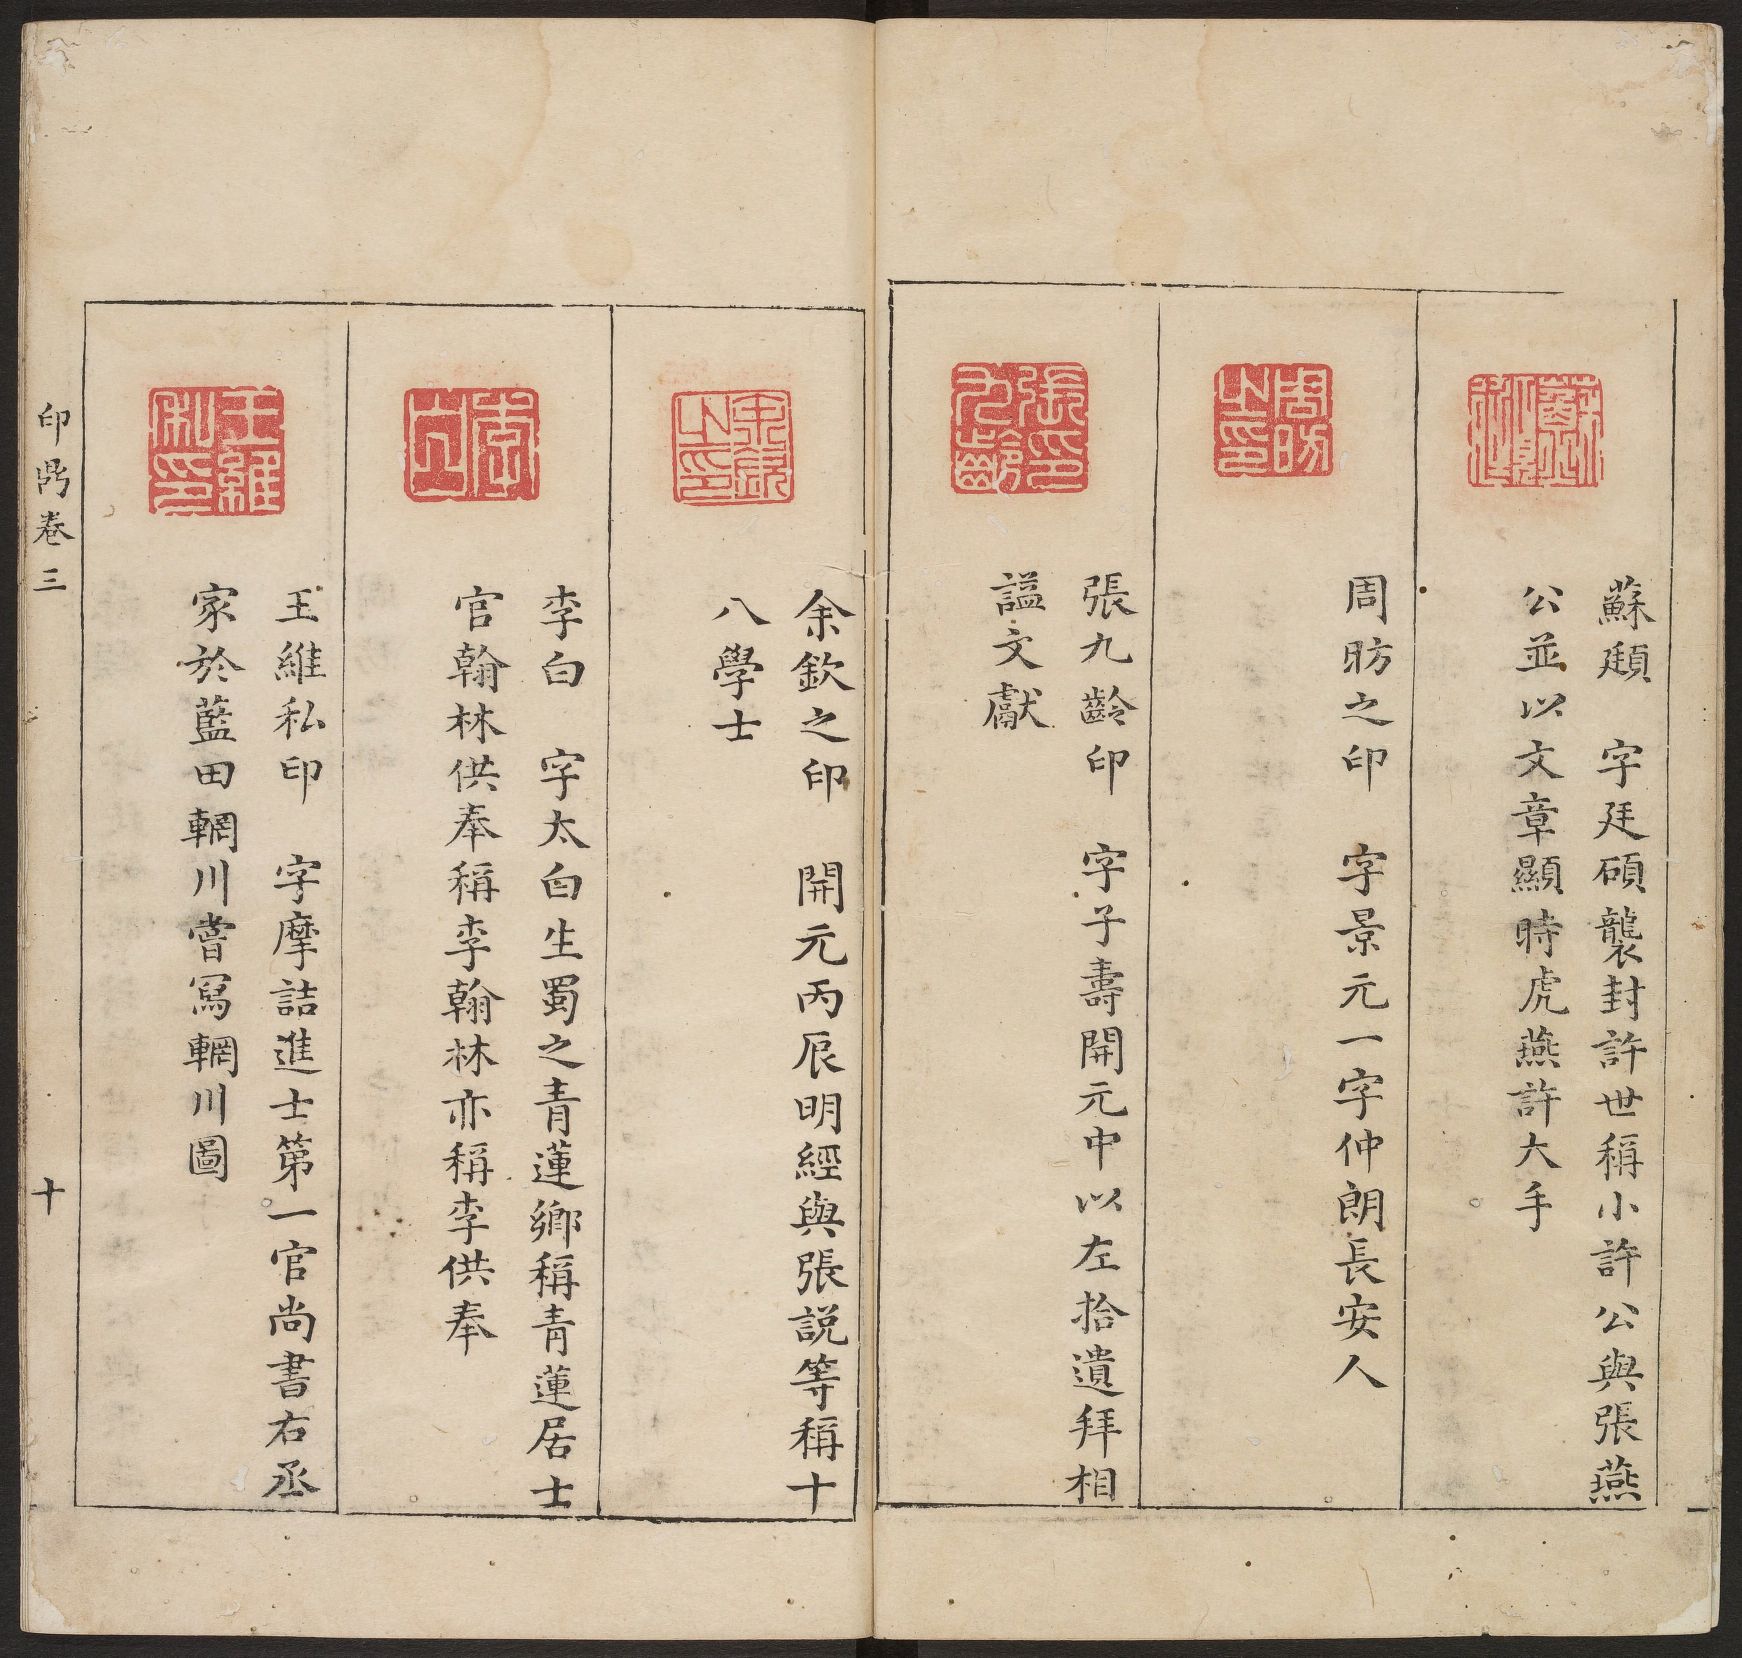 蘇頲　字廷碩襲封許世稱小許公與張燕
公並以文章顯時虎燕許大手
周昉之印　字景元一字仲朗長安人
張九齡印　字子壽開元中以左拾遺拜相
謚文獻
余欽之印　開元丙辰明經與張説等稱十
八學士
李白　字太白生蜀之青蓮鄉稱青蓮居士
官翰林供奉稱李翰林亦稱李供奉
王維私印　字摩詰進士第一官尚書右丞
家於藍田輞川嘗寫輞川圖
周昉之印
張九齡印
余欽之印
李白
王維私印
卷三
十